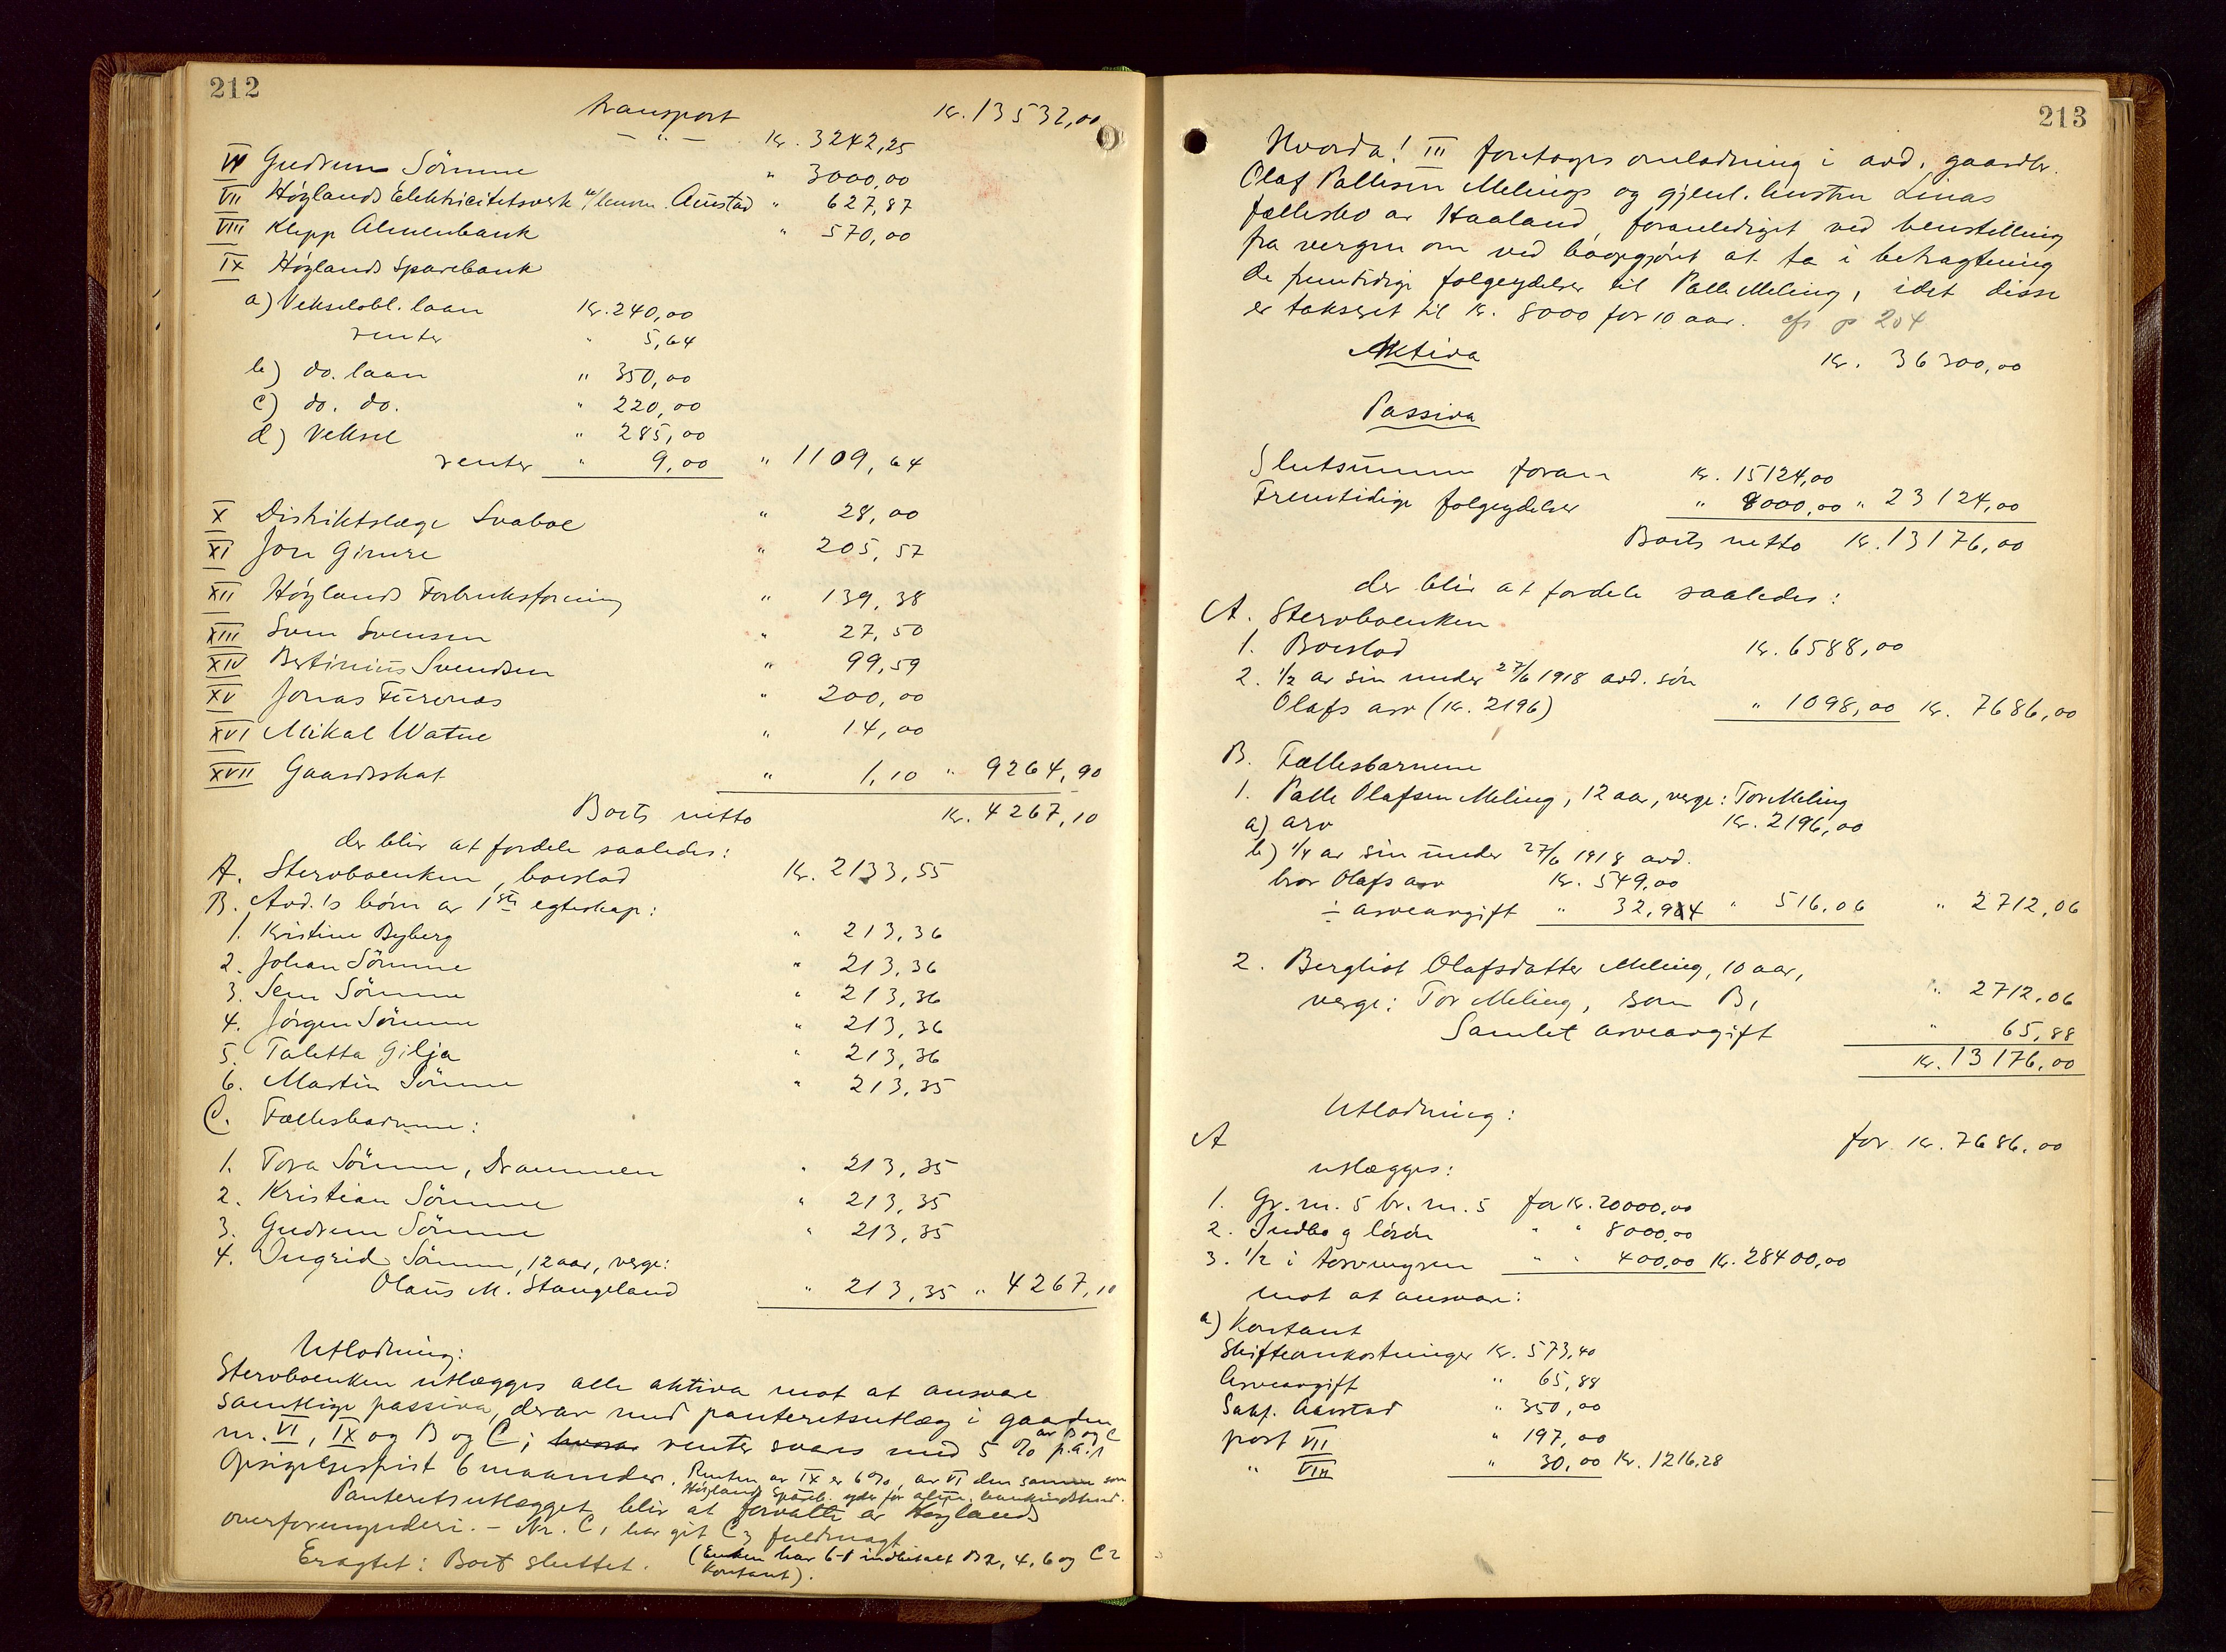 212
transport Kr. 13532,00
— " — Kr. 3242,25
VI Gudrun Sömme " 3000,00
VII Höylands Elektricitetsverk v/lensm. Austad " 627,87
VIII Klepp Almenbank " 570,00
IX Höylands Sparebank
a) Vekselobl. laan Kr. 240,00
renter " 5,64
b) do. laan " 350,00
c) do. do. " 220,00
d) Veksel " 285,00
renter " 9,00 " 1109,64
X Distriktslæge Svaboe " 28,00
XI Jon Gimre " 205,57
XII Höylands Forbruksforening " 139,38
XIII Sven Svensen " 27,50
XIV Bertinius Svendsen " 99,59
XV Jonas Furenes " 200,00
XVI Mikal Watne " 14,00
XVII Gaardsskat " 1,10 " 9264,90
Boets netto Kr. 4267,10
der blir at fordele saaledes:
A. Stervboenken, boeslod Kr. 2133,55
B. Avd.'s börn av 1ste egteskap:
1. Kristine Byberg " 213,36
2. Johan Sömme " 213,36
3. Sem Sömme " 213,36
4. Jörgen Sömme " 213,36
5. Taletta Gilja " 213,36
6. Martin Sömme " 213,35
C. Fællesbarnene:
1. Tora Sömme, Drammen " 213,35
2. Kristian Sömme " 213,35
3. Gudrun Sömme " 213,35
4. Ingrid Sömme, 12 aar, verge:
Olaus M. Stangeland " 213,35 " 4267,10
Utlodning:
Stervboenken utlægges alle aktiva mot at ansvare
samtlige passiva, derav med panteretsutlæg i gaarden
nr. VI, IX og B og C; renter av B og C svares med 5 % p.a.,
opsigelsesfrist 6 maaneder. Renten av IX er 6%, av VI den samme som
Höylands Spareb. yder for alm. bankindskud.
Panteretsutlægget blir at forvalte av Höylands
overformynderi. – Nr. C1 har git C3 fuldmagt.
Eragtet: Boet sluttet. (Enken har 6-1 indbetalt B2, 4, 6 og C2
kontant).
213
Hvorda! III foretages omlodning i avd. gaardbr.
Olaf Pallesen Melings og gjenl. hustru Linas
fællesbo av Haaland, foranlediget ved henstilling
fra vergen om ved boopgjöret at ta i betragtning
de fremtidige folgeydelser til Palle Meling, idet disse
er takseret til Kr. 8000 for 10 aar. cfr p 204
Aktiva Kr. 36300,00
Passiva
Slutsummen foran Kr. 15124,00
Fremtidige folgeydelser " 8000,00 " 23124,00
Boets netto Kr. 13176,00
der blir at fordele saaledes:
A. Stervboenken
1. Boeslod Kr. 6588,00
2. 1/2 av sin under 27/6 1918 avd. sön
Olafs arv (Kr. 2196) " 1098,00 Kr. 7686,00
B. Fællesbarnene
1. Palle Olafsen Meling, 12 aar, verge: Tor Meling
a) arv Kr. 2196,00
b) 1/4 av sin under 27/6 1918 avd.
bror Olafs arv Kr. 549,00
÷ arveavgift " 32,94 " 516,06 " 2712,06
2. Bergliot Olafsdatter Meling, 10 aar,
verge: Tor Meling, som B1 " 2712,06
Samlet arveavgift " 65,88
Kr. 13176,00
Utlodning:
A for Kr. 7686,00
utlægges:
1. Gr. nr. 5 br. nr. 5 for Kr. 20000,00
2. Indbo og lösöre " " 8000,00
3. 1/2 i torvmyren " " 400,00 Kr. 28400,00
mot at ansvare:
a) Kontant
Skifteomkostninger Kr. 573,40
Arveavgift " 65,88
Sakf. Aarstad " 350,00
post VII " 197,00
" VIII " 30,00 Kr. 1216,28